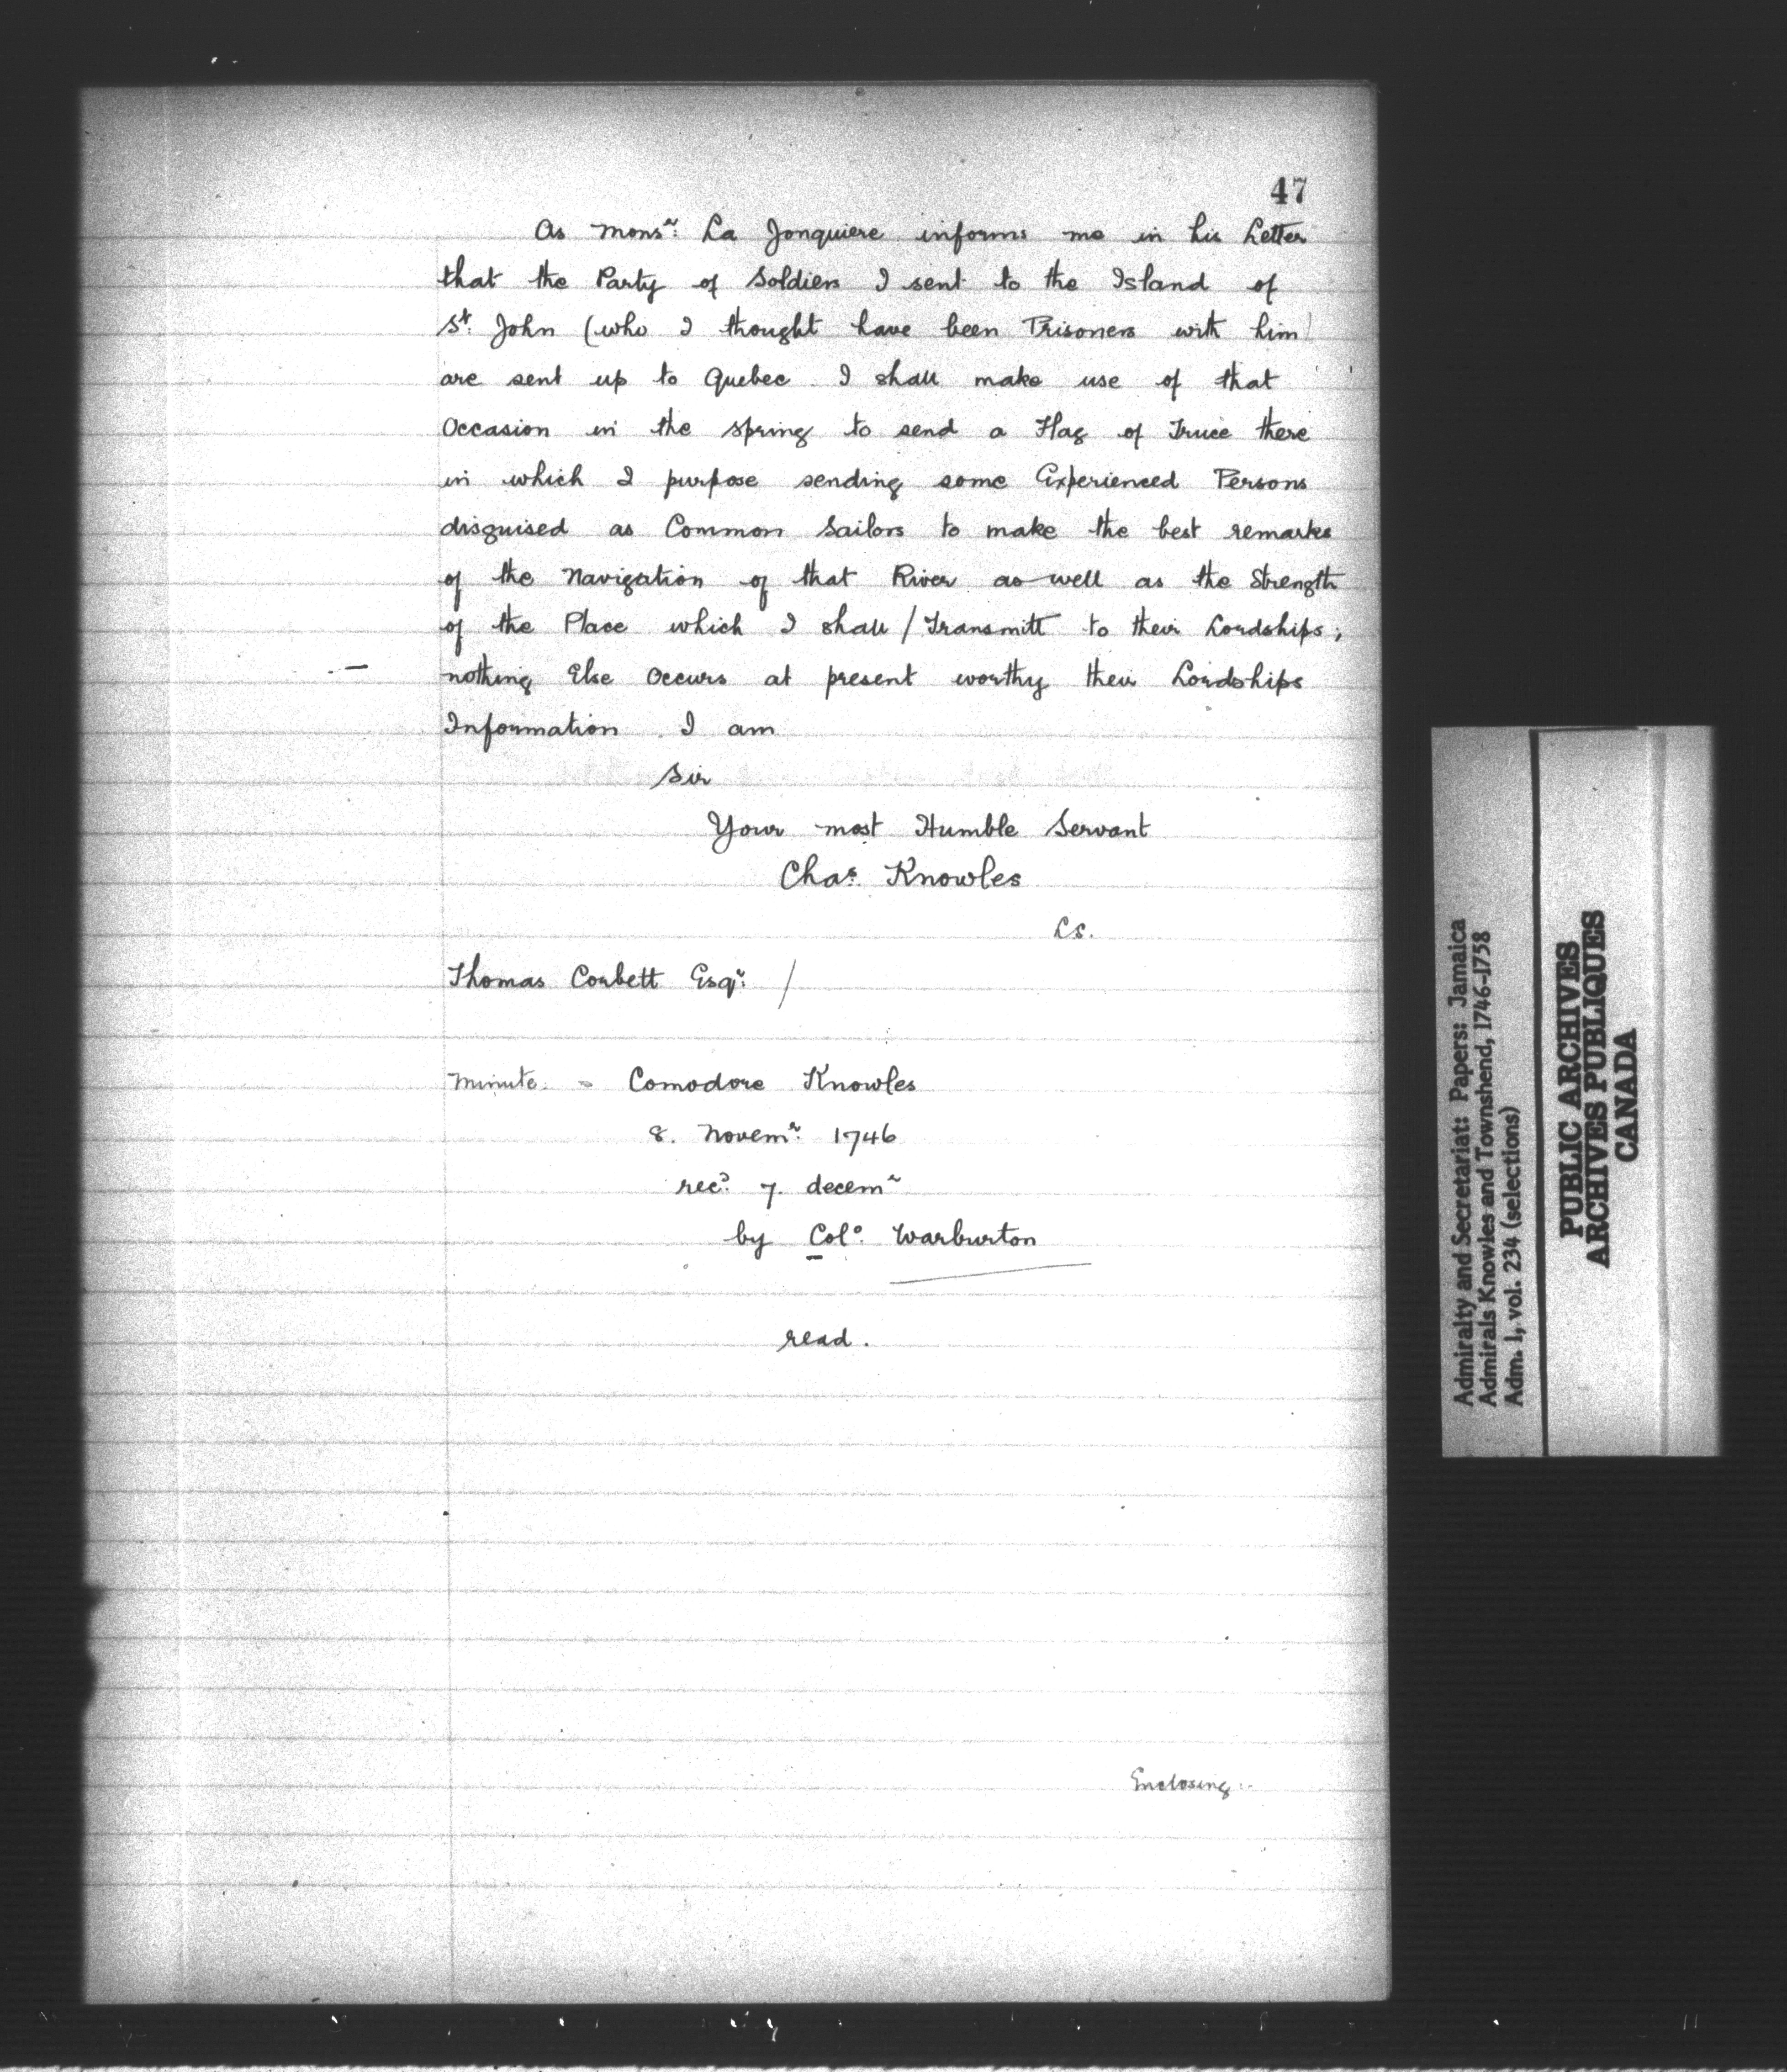 47
As Monsr: La Jonquiere informs me in his Letter
that the Party of Soldiers I sent to the Island of
St: John (who I thought have been Prisoners with him)
are sent up to Quebec. I shall make use of that
Occasion in the Spring to send a Flag of Truce there
in which I purpose sending some Experienced Persons
disguised as Common Sailors to make the best remarks
of the Navigation of that River as well as the Strength
of the Place which I shall / Transmitt to their Lordships;
nothing Else Occurs at present worthy their Lordships
Information. I am
Sir
Your most Humble Servant
Chas. Knowles
LS.
Thomas Corbett Esqr: /
Minute. - Comodore Knowles
8. Novemr: 1746
recd. 7. decemr
by Colo: Warburton
read.
Enclosing:-
Admiralty and Secretariat: Papers: Jamaica
Admirals Knowles and Townshend, 1746-1758
Adm. 1, vol. 234 (selections)
PUBLIC ARCHIVES
ARCHIVES PUBLIQUES
CANADA